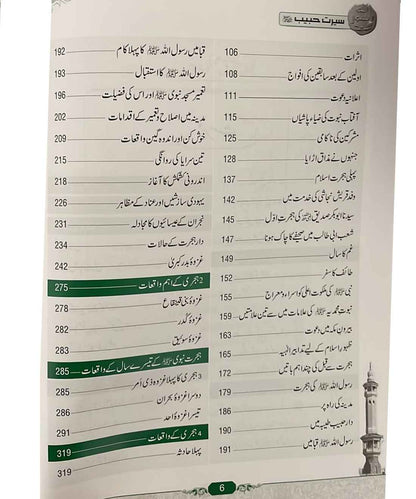 سیرت حبیب ﷺ
اثرات 106
اولین کے بعد سابقین کی افواج 108
اعلانیہ دعوت 111
آفتاب نبوت کی ضیاء پاشیاں 115
مشرکین کی ناکامی 125
جنہوں نے مذاق اڑایا 128
پہلی ہجرت اسلام 137
وفد قریش نجاشی کی خدمت میں 142
سیدنا ابوبکر صدیق کی ہجرت اوّل 145
شعب ابی طالب میں صحیفے کا چاک ہونا 147
غم کا سال 149
طائف کا سفر 152
نبی ﷺ کی ملکوت اعلیٰ کو اسراء و معراج 155
نبوت محمدیہ ﷺ کی علامات میں سے تین علامتیں 159
بیرون مکہ میں دعوت 163
ظہور اسلام کے لیے تدابیر الٰہیہ 165
ہجرت سے قبل کی چند اہم باتیں 172
رسول اللہ ﷺ کی ہجرت 179
مدینہ کی راہ پر 186
دار حبیب طیبہ میں 190
رسول اللہ ﷺ قبا میں 191
قبا میں رسول اللہ ﷺ کا پہلا کام 192
رسول اللہ ﷺ کا استقبال 193
تعمیر مسجد نبوی ﷺ اور اس کی فضیلت 196
مدینہ میں اصلاح و تعمیر کے اقدامات 202
خوش کن اور اندوہ گین واقعات 209
تین سرایا کی روانگی 215
اندرونی کشمکش کا آغاز 218
یہودی سازشیں اور عناد کے مظاہر 226
نجران کے عیسائیوں کا مجادلہ 231
دار ہجرت کے حالات 234
غزوۂ بدر کبریٰ 242
2 ہجری کے اہم واقعات 275
غزوۂ بنی قینقاع 278
غزوۂ کدر 282
غزوۂ سویق 283
ہجرت نبوی ﷺ کے تیسرے سال کے واقعات 285
3 ہجری کا پہلا غزوہ ذی امر 285
دوسرا غزوۂ بحران 286
تیسرا غزوۂ احد 291
4 ہجری کے واقعات 319
پہلا حادثہ 319
6